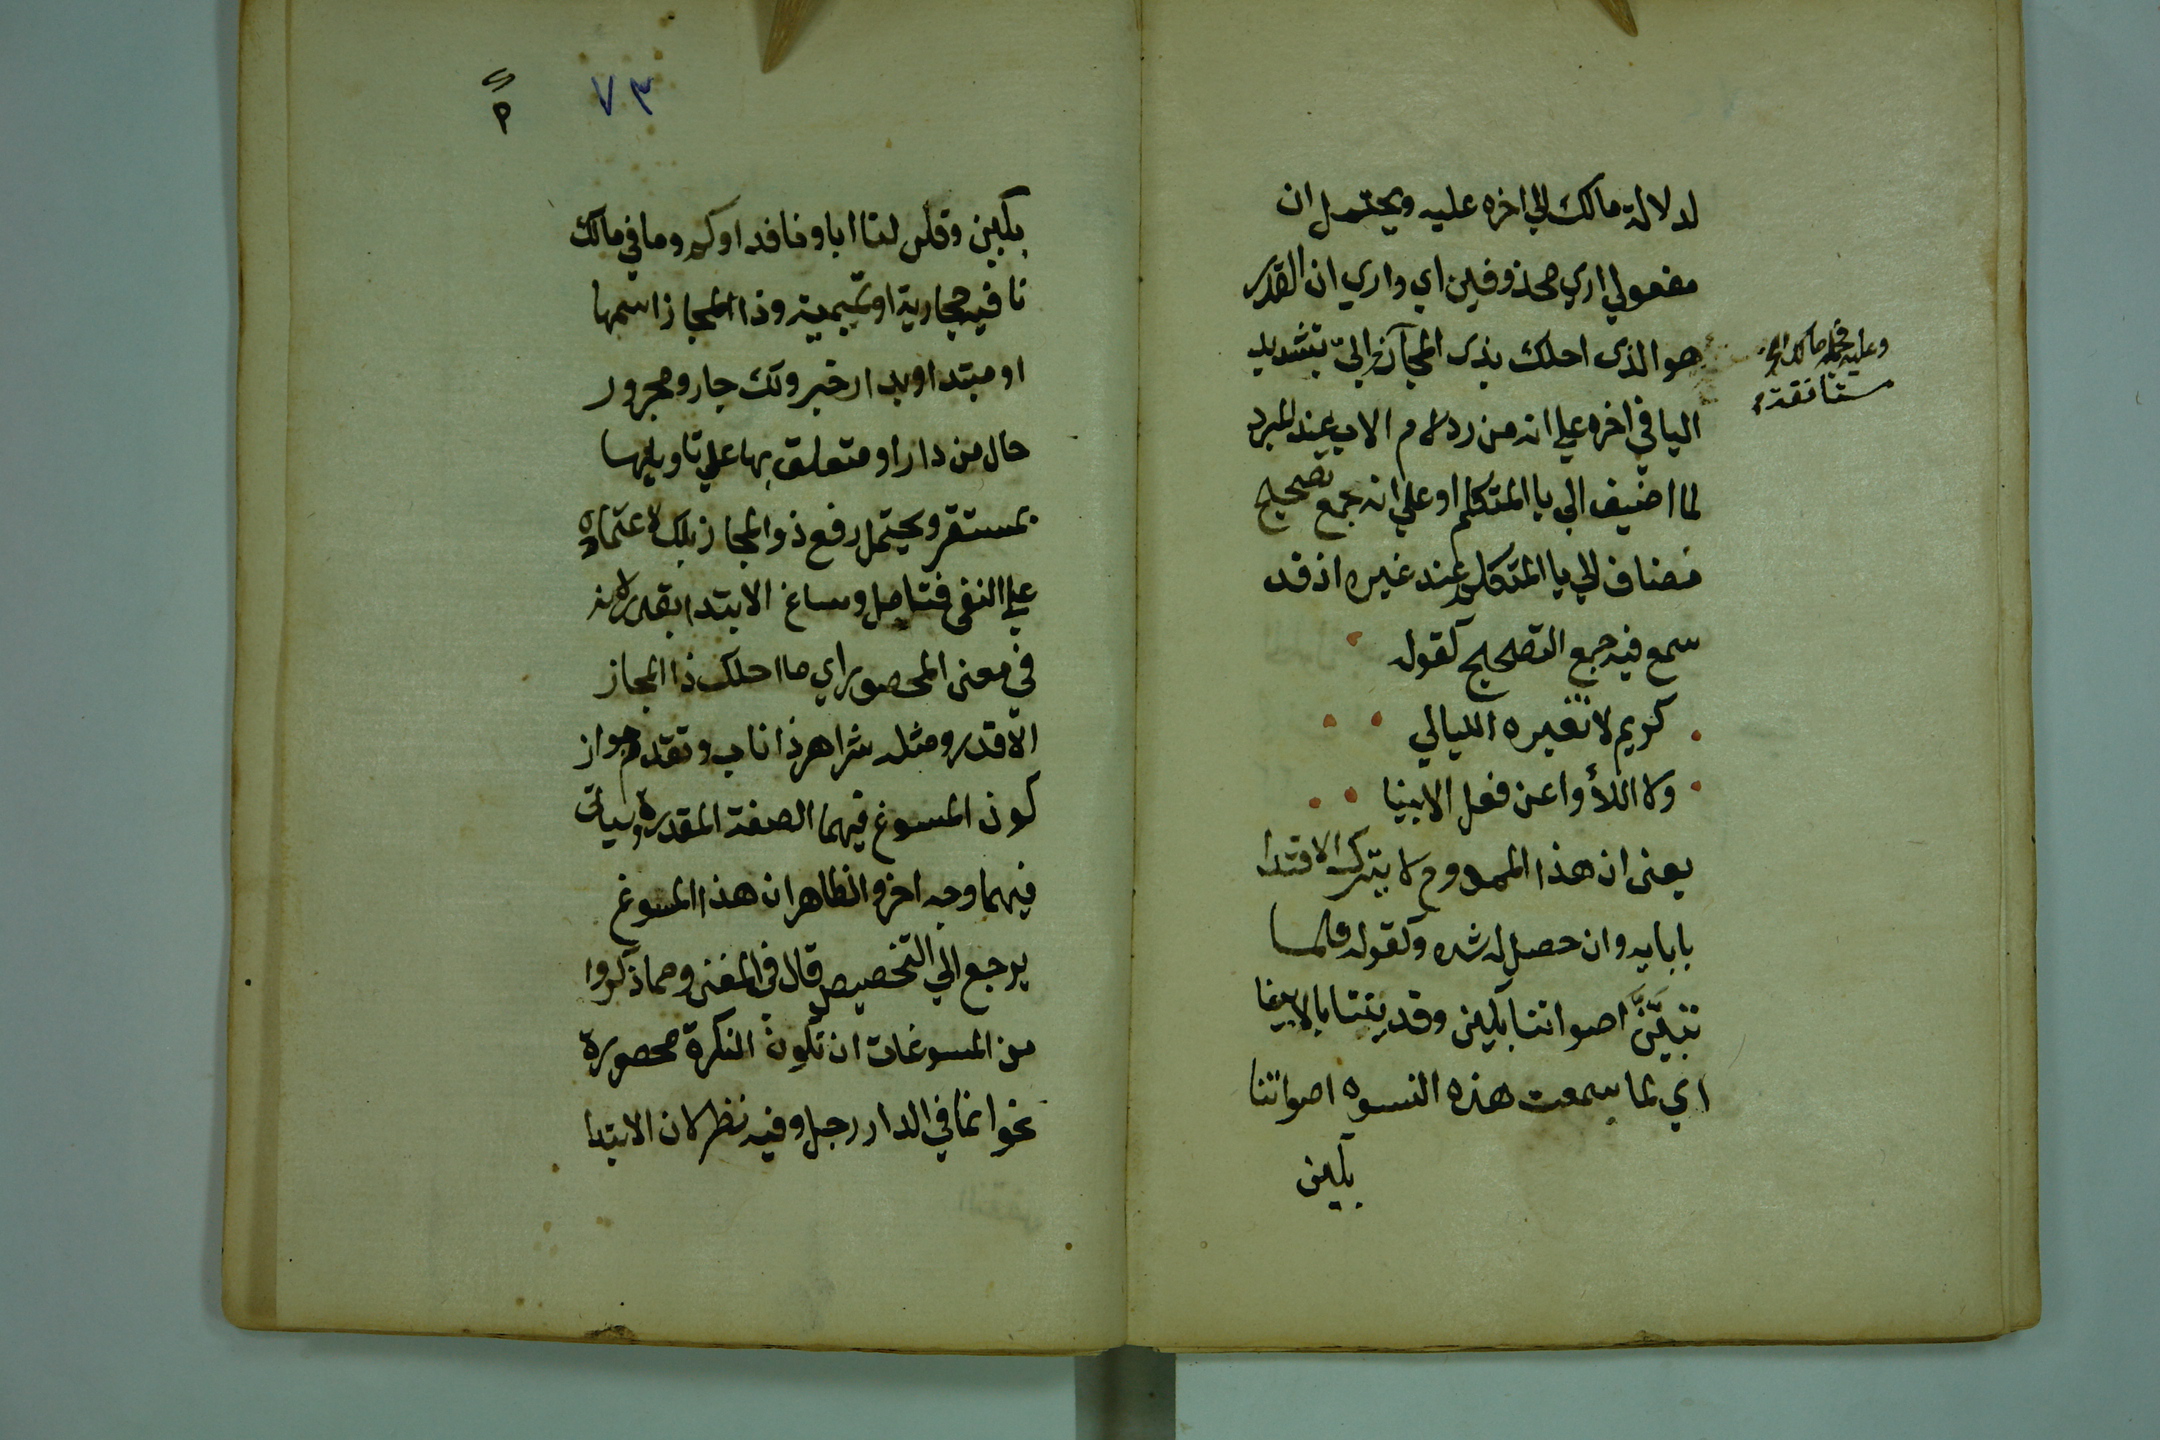 لدلالة مالك الي اخره عليه ويحتمل ان
مفعولي اري محذوفين اي واري ان القدر
هو الذى احلك بذى المجاز وابيّ بتشديد
اليا في اخره علي انه من رد لام الاب عند المبرد
لما اضيف الي يا المتكلم او علي انه جمع تصحيح
مضاف الي يا المتكلم عند غيره اذ قد
سمع فيه جمع التصحيح كقوله
كريم لا تغيره الليالي
ولا اللأوا عن فعل الابينا
يعني ان هذا الممدوح لا يترك الاقتدا
بابايه وان حصل له شده وكقوله فلما
تبيَّنَّ اصواتنا بكين وفديننا بالابينا
اي لما سمعت هذه النسوه اصواتنا
بكين
وعليه فجملة مالك الخ
مستانفة
٧٣
بكين وقلن لنا ابا ونا فداوكم وما في مالك
نافيه حجازية او تميمية وذا المجاز اسمها
او مبتدا وبدار خبر ولك جار ومجرور
حال من دار او متعلق بها علي تاويلها
بمستقر ويحتمل رفع ذو المجاز بلك لاعتماده
علي النفي فتامل وساغ الابتدا بقدر لانه
في معنى المحصور اي ما احلك ذا المجاز
الّا قدر ومثله شر اهر ذا ناب وتقدم جواز
كون المسوغ فيهما الصفة المقدرة وسياتي
فيهما وجه اخر والظاهر ان هذا المسوغ
يرجع الي التخصيص قال في المغنى ومما ذكروا
من المسوغات ان تكون النكرة محصورة
نحو انما في الدار رجل وفيه نظر لان الابتدا